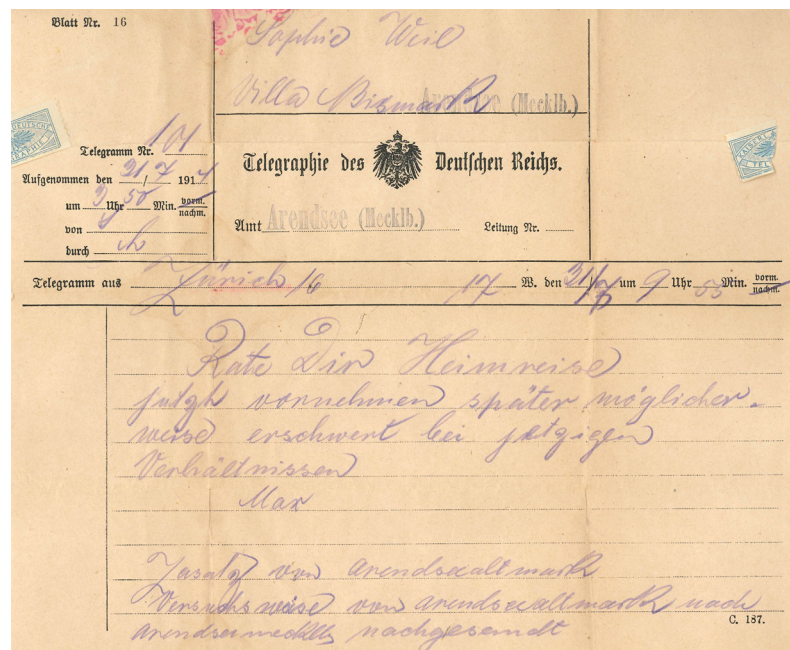 Blatt Nr. 16
Sophie Weil
Villa Bismark
Arendsee (Mecklb.)
Telegramm Nr. 101
Aufgenommen den 31/7 1914
um 3 Uhr 50 Min. vorm. nachm.
von
durch
Telegraphie des Deutschen Reichs.
Amt Arendsee (Mecklb.) Leitung Nr.
Telegramm aus Zürich 16 17 W. den 31/7 um 9 Uhr 55 Min. vorm. nachm.
Rate Dir Heimreise
vornehmen später möglicher-
weise erschwert bei jetzigen
Verhältnissen
Max
Zusatz von arendseealtmark
Versuchsweise von arendseealtmark nach
arendseemecklb nachgesandt
C. 187.